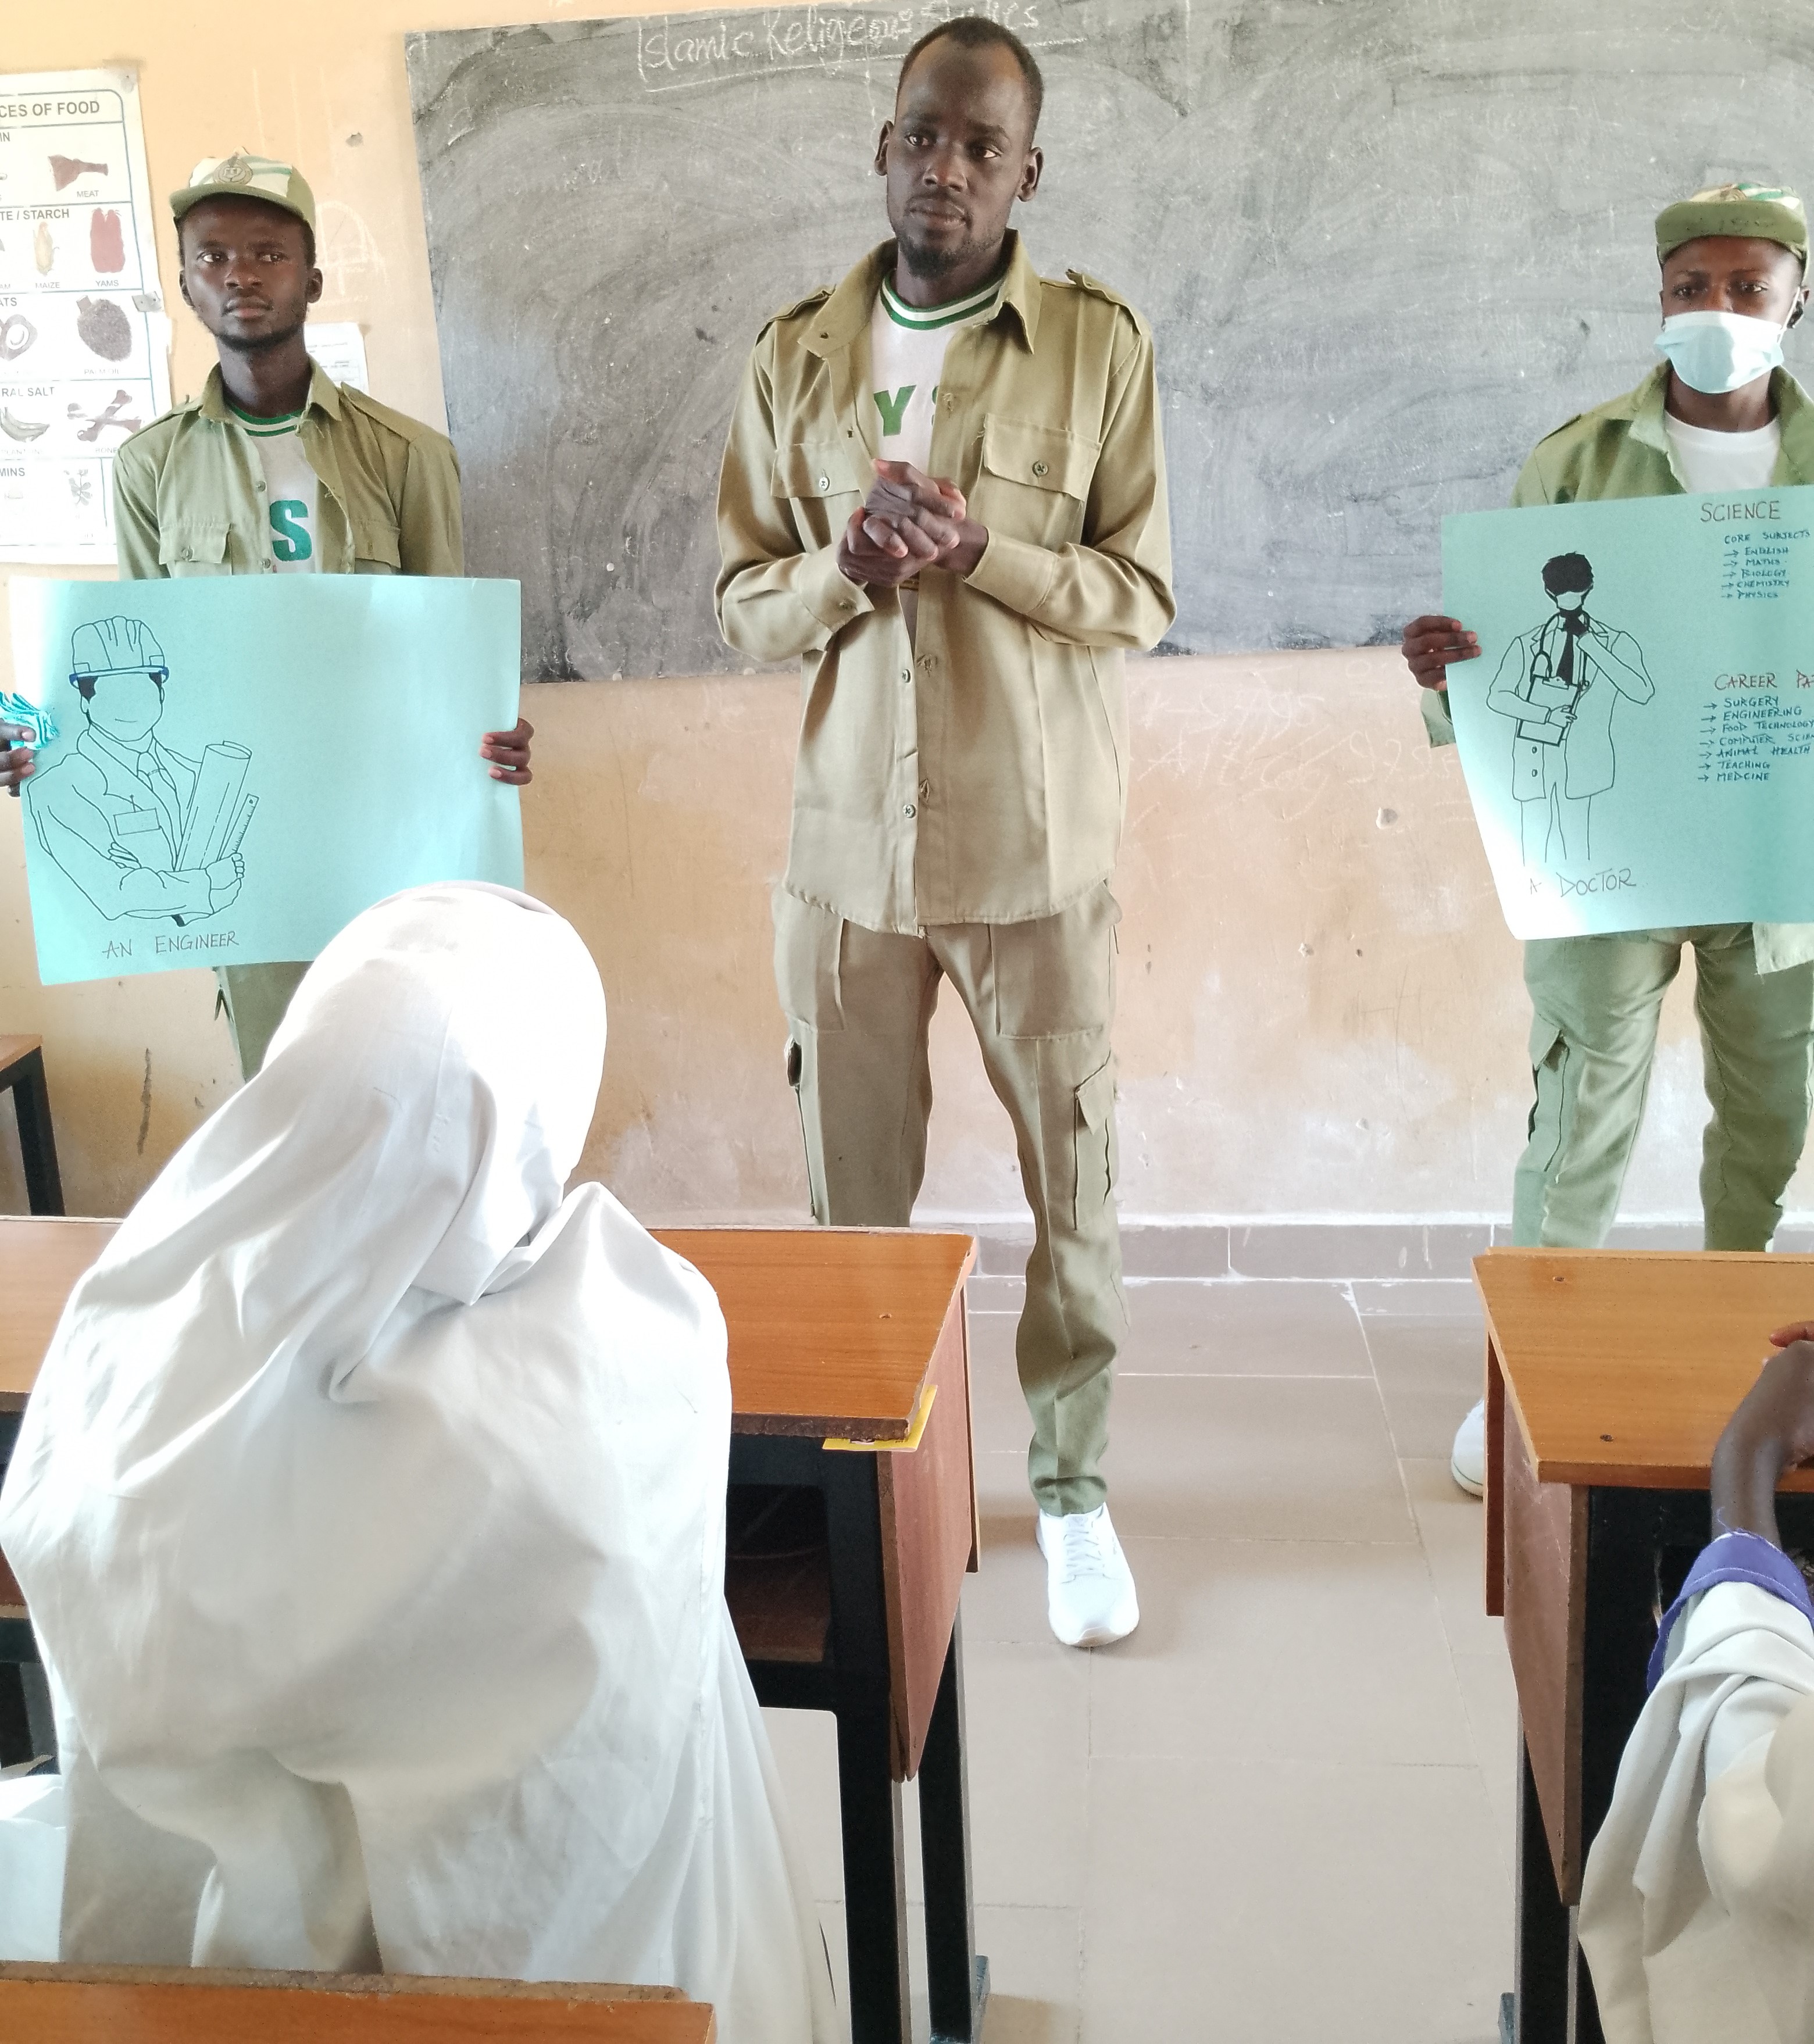 Islamic Religeous Studies
CES OF FOOD
IN
MEAT
TE / STARCH
AM
MAIZE
YAMS
ATS
PALM OIL
RAL SALT
MINS
Y
S
AN ENGINEER
SCIENCE
CORE SUBJECTS
→ ENGLISH
→ MATHS
→ BIOLOGY
→ CHEMISTRY
→ PHYSICS
CAREER PA
→ SURGERY
→ ENGINEERING
→ FOOD TECHNOLOGY
→ COMPUTER SCIEN
→ ANIMAL HEALTH
→ TEACHING
→ MEDCINE
A DOCTOR